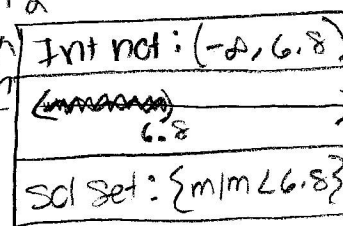 Int not: (-∞, 6.8)
6.8
Sol Set: {m|m<6.8}